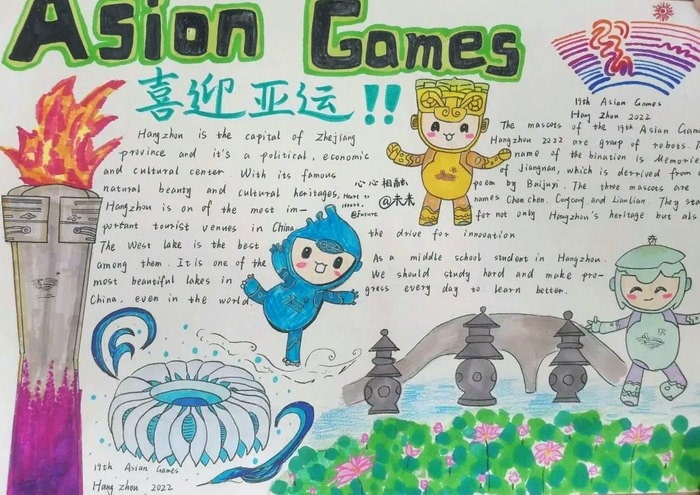 Asion Games
喜迎亚运!!
19th Asian Games
Hang Zhou 2022
Hangzhou is the capital of Zhejiang
province and it's a political, economic
and cultural center. With its famous
natural beauty and cultural heritages,
Hangzhou is on of the most im-
portant tourist venues in China.
The West lake is the best
among them. It is one of the
most beautiful lakes in
China, even in the world.
心心相融
@未来
Heart to
heart,
@future
The mascots of the 19th Asian Gam
Hangzhou 2022 are group of robots. T
name of the bination is Memorie
of Jiangnan, which is derrived from a
poem by Baijuyi. The three mascots are
names Chen chen, Congcong and Lianlian. They sta
for not only Hangzhou's heritage but als
the drive for innovation
As a middle school student in Hangzhou.
We should study hard and make pro-
gress every day to learn better.
19th Asian Games
Hang Zhou 2022